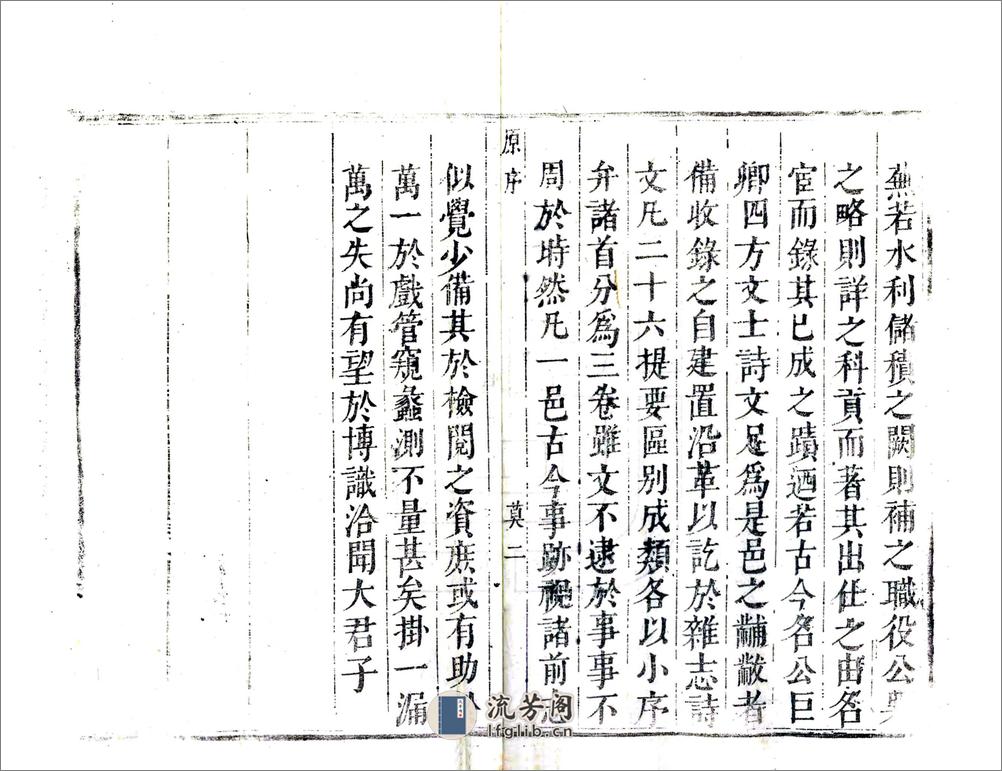 蕪若水利儲積之闕則補之職役公
之略則詳之科貢而著其出仕之由各
宦而錄其已成之蹟迺若古今名公巨
卿四方文士詩文足為是邑之黼黻者
備收錄之自建置沿革以訖於雜志詩
文凡二十六提要區别成類各以小序
弁諸首分為三卷雖文不逮於事事不
周於時然凡一邑古今事跡視諸前志
原序 莫二
似覺少備其於檢閱之資庶或有助
萬一於戲管窺蠡測不量甚矣掛一漏
萬之失尚有望於博識洽聞大君子
流芳阁
lfglib.cn